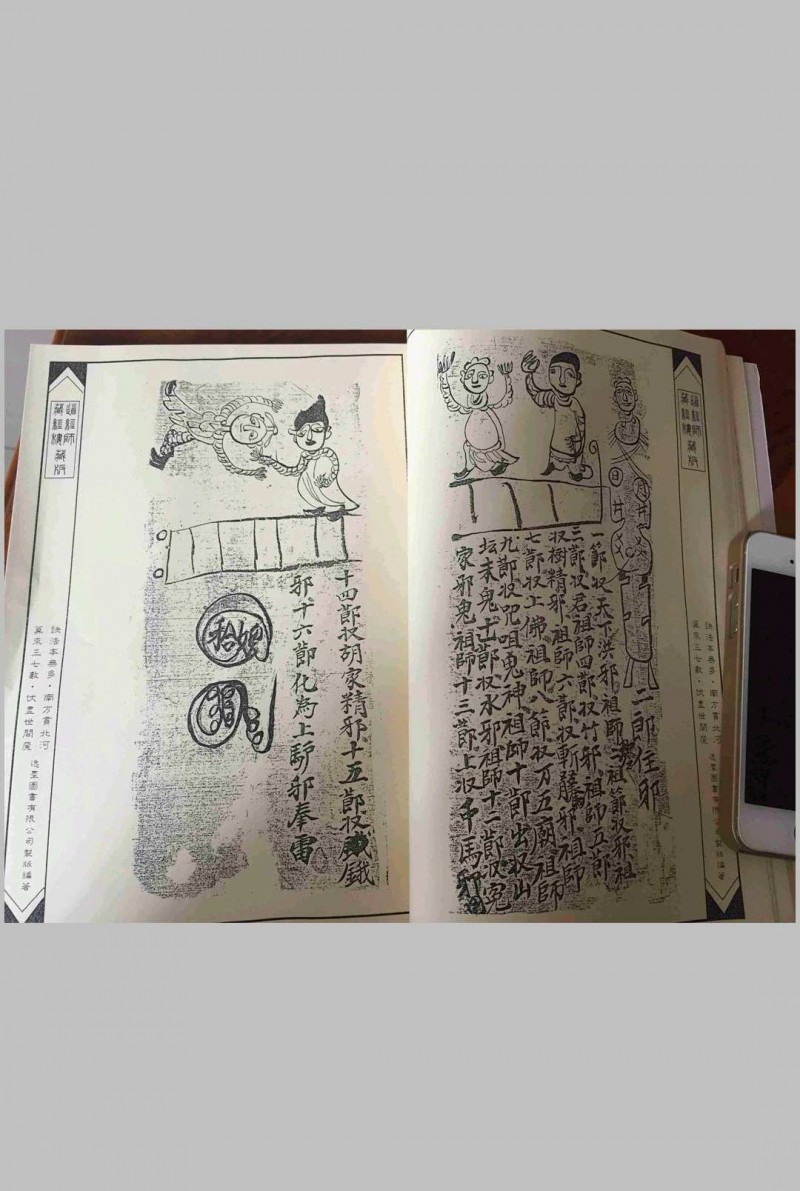 道經師
藏經樓 藏版
訣法本無多·南方貫北河
算來三七數·伏盡世間魔
逸羣圖書有限公司製版編著
二郎住邪
一節收天下洪邪祖師二祖節收邪祖
三節收君祖師四節收竹邪祖師五節
收樹精邪祖師六節收斬邪祖師
七節收上佛祖師八節收万五廟祖師
九節收咒咀鬼神祖師十節出收山
坛末鬼十節收水邪祖師十二節收冤
家邪鬼祖師十三節上收牛馬邪
道經師
藏經樓 藏版
十四節收胡家精邪十五節收鐵
邪十六節化為上馿邪奉雷
訣法本無多·南方貫北河
算來三七數·伏盡世間魔
逸羣圖書有限公司製版編著